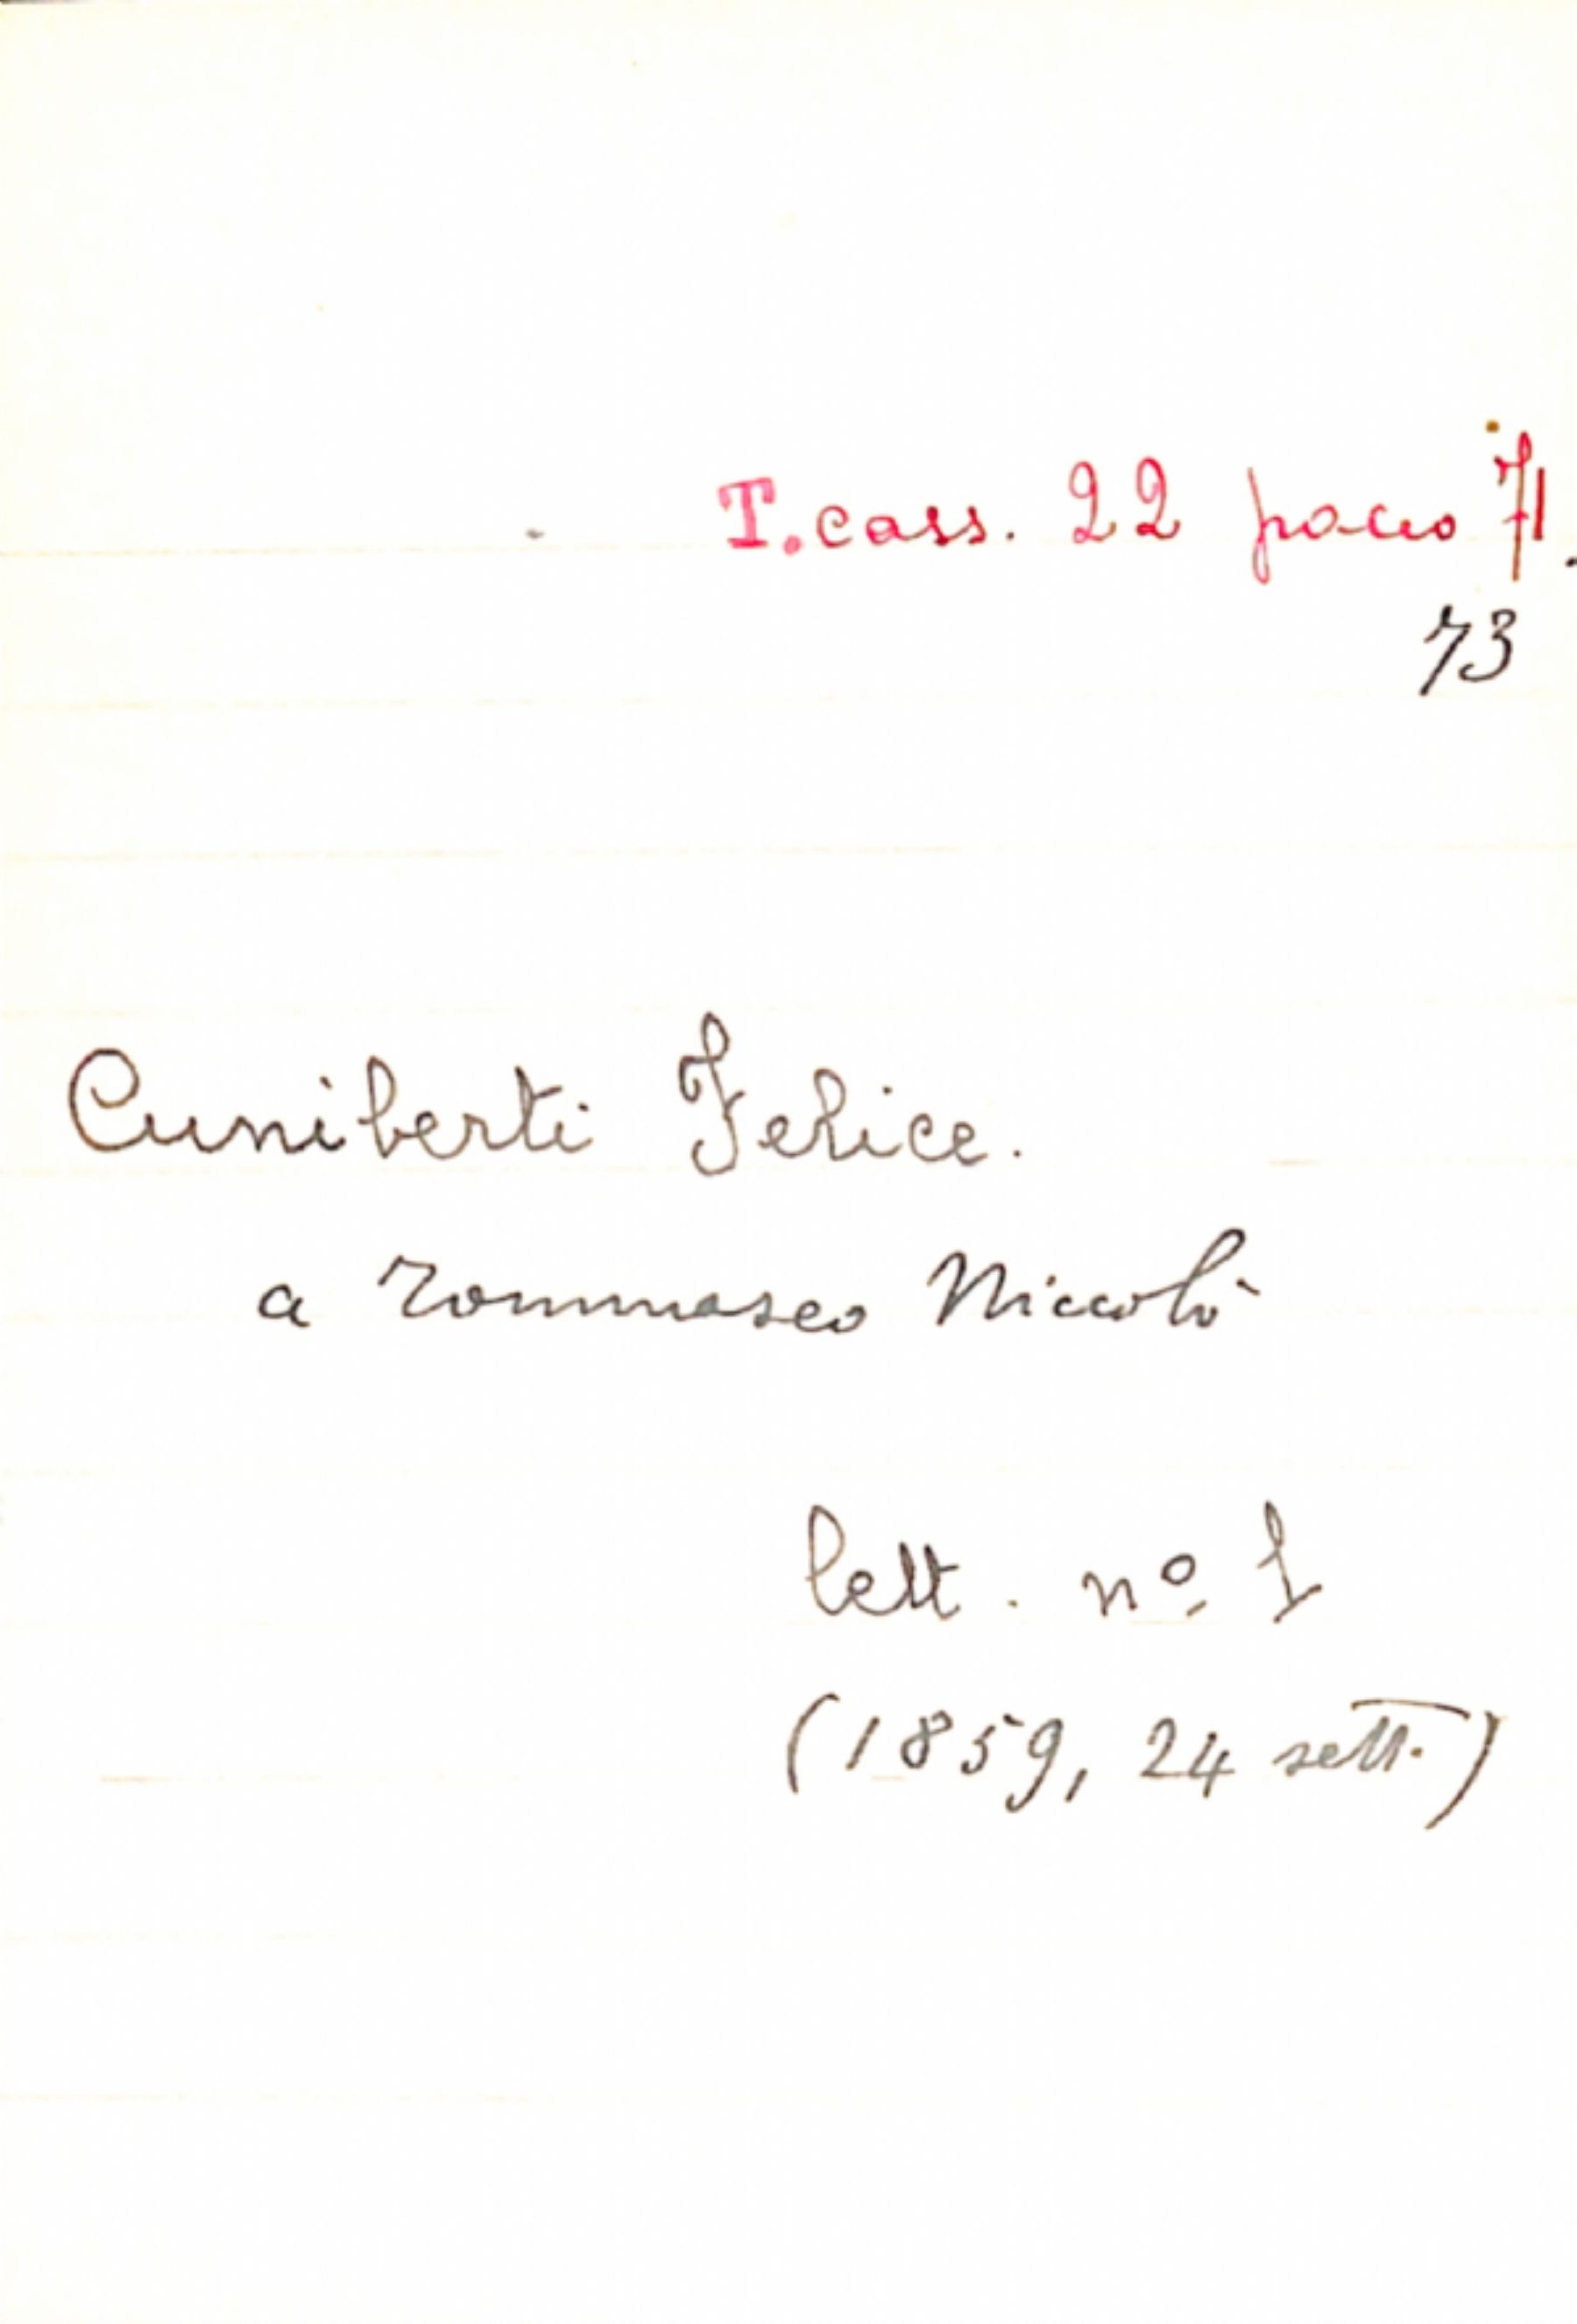 T. cass. 22 pacco 71.
73
Cuniberti Felice.
a Tommaseo Niccolò
lett. nº 1
(1859, 24 sett.)